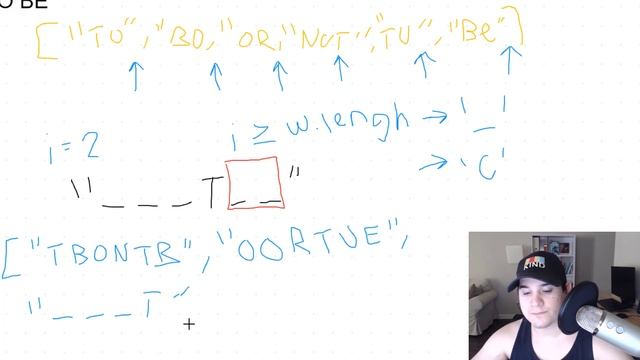 O BE
["TO", "BO, "OR, "NOT", "TU", "Be"]
i = 2
i ≥ w.lengh → '_'
→ 'C'
"_ _ _ T _ _"
["TBONTB", "OORTUE",
"_ _ _ T"
KIND